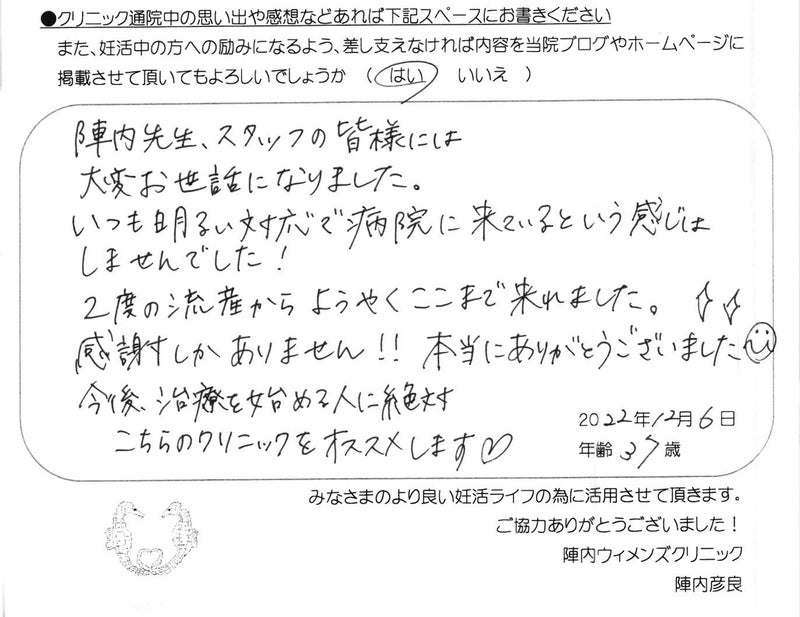 ●クリニック通院中の思い出や感想などあれば下記スペースにお書きください
また、妊活中の方への励みになるよう、差し支えなければ内容を当院ブログやホームページに
掲載させて頂いてもよろしいでしょうか （ はい ・ いいえ ）
陣内先生、スタッフの皆様には
大変お世話になりました。
いつも明るい対応で病院に来ているという感じは
しませんでした！
2度の流産からようやくここまで来れました。
感謝しかありません!! 本当にありがとうございました
今後、治療を始める人に絶対
こちらのクリニックをオススメします♡
2022年12月6日
年齢 37歳
みなさまのより良い妊活ライフの為に活用させて頂きます。
ご協力ありがとうございました！
陣内ウィメンズクリニック
陣内彦良